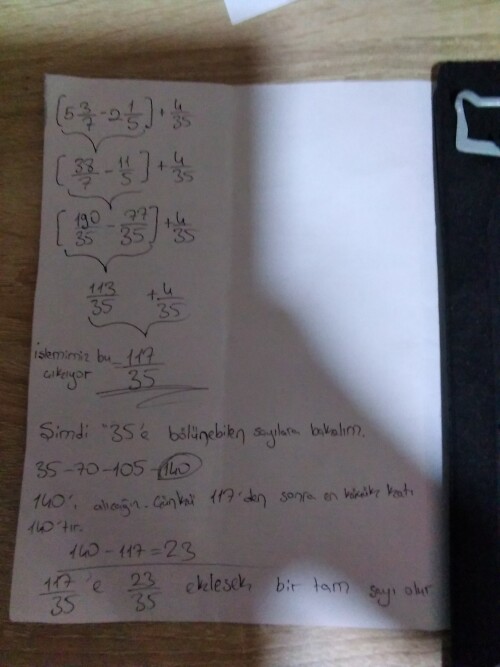 [5 3/7 - 2 1/5] + 4/35
[38/7 - 11/5] + 4/35
[190/35 - 77/35] + 4/35
113/35 + 4/35
işlemimiz bu 117/35
çıkıyor
Şimdi "35'e bölünebilen sayılara bakalım.
35-70-105-140
140'ı alıcağız. Çünkü 117'den sonra en küçük katı
140'tır.
140-117=23
117/35'e 23/35 eklesek, bir tam sayı olur